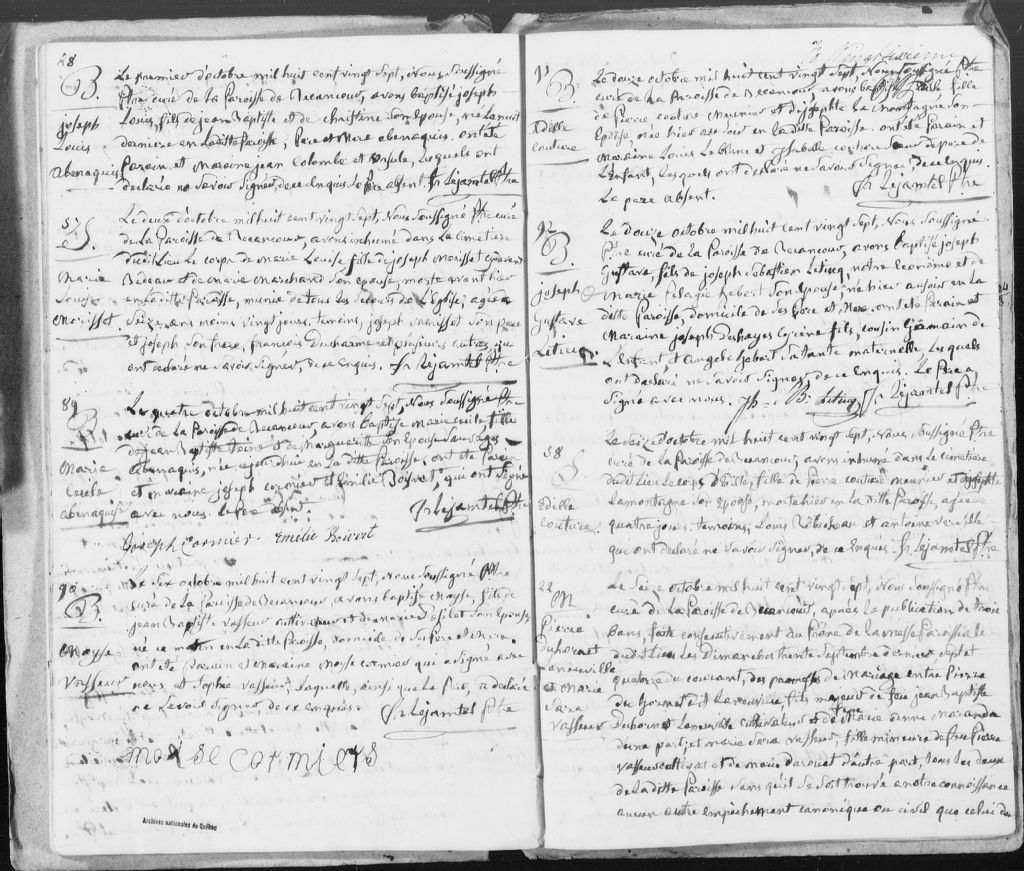 88
B.
joseph
Louis
abenaquis
Le premier d'octobre mil huit cent vingt sept, Nous soussigné
Ptre curé de la Paroisse de Becancour, avons baptisé joseph
Louis, fils de jean Baptiste et de christine son Epouse, né la nuit
derniere en La ditte Paroisse, Pere et Mere abenaquis. ont été
Parain et Maraine jean Colombe et Ursule, Lesquels ont
declaré ne savoir signer, de ce Enquis. Le père absent. Fr Lejamtel Ptre
57
S.
Marie
Louise
Morisset
Le deux d'octobre mil huit cent vingt sept, Nous soussigné Ptre curé
de La Paroisse de Becancour, avons inhumé dans Le cimetiere
dudit Lieu Le corps de Marie Louise, fille de joseph Morisset
et de Marie Marchand son epouse, morte avant hier
en La ditte Paroisse, munie de tous les secours de L'Eglise, agée de
seize ans moins vingt jours. temoins, joseph Morisset son Pere
et joseph son frere, francois Ducharme et plusieurs autres qui
ont declaré ne savoir signer, de ce Enquis. Fr Lejamtel Ptre
89
B
Marie
Cecile
abenaquise
Le quatre octobre mil huit cent vingt sept, Nous soussigné Ptre
curé de La Paroisse de Becancour, avons baptisé Marie cecile fille
de jean Baptiste et de Marguerite son Epouse sauvages
abenaquis, née en La ditte Paroisse, ont été Parain
et maraine joseph cormier et Emilie Boisvert, qui ont signé
avec nous. Le pere absent. Fr Lejamtel Ptre
Joseph Cormier - Emilie Boivert
90
B.
Moyse
Vasseur
Le six octobre mil huit cent vingt sept, Nous soussigné Ptre
curé de La Paroisse de Becancour, avons baptisé Moyse, fils de
jean Baptiste Vasseur cultivateur et de son Epouse,
né ce matin en La ditte Paroisse, domicile de ses Pere et Mere.
ont été Parain et Maraine Moyse cormier qui a signé avec
nous et Sophie Vasseur, Laquelle, ainsi que Le Pere, a declaré
ne savoir signer, de ce enquis. Fr Lejamtel Ptre
moise cormiers
Archives nationales du Québec
91
B.
Edille
couture
Le douze octobre mil huit cent vingt sept, Nous soussigné Ptre
curé de La Paroisse de Becancour, avons baptisé Edille fille
de Pierre couture Meunier et d'josephte La Montagne son
Epouse, née hier au soir en La ditte Paroisse. ont été Parain et
Maraine Louis Leblanc et couture soeur du pere de
L'Enfant, Lesquels ont declaré ne savoir signer, de ce Enquis.
Le pere absent. Fr Lejamtel Ptre
92
B
joseph
Gustave
Leticq
Le douze octobre mil huit cent vingt sept, Nous soussigné
Ptre curé de La Paroisse de Becancour, avons baptisé joseph
Gustave, fils de joseph Sebastien Leticq, notre Econôme et de
Marie Pelagie hebert son Epouse, né hier au soir en La
ditte Paroisse, domicile de ses Pere et Mere. ont été Parain et
Maraine joseph Deshayes fils, cousin Germain de
L'Enfant, et angele hebert sa tante maternelle, Lesquels
ont declaré ne savoir signer, de ce Enquis. Le Pere a
signé avec nous. Fr Lejamtel Ptre
58
S
Edille
couture
Le seize d'octobre mil huit cent vingt sept, Nous soussigné Ptre
curé de La Paroisse de Becancour, avons inhumé dans Le cimetiere
dudit Lieu Le corps d'Edille, fille de Pierre couture meunier et josephte
Lamontagne son Epouse, morte hier en La ditte Paroisse, agée de
quatre jours. temoins, Louis et antoine
qui ont declaré ne savoir signer, de ce Enquis. Fr Lejamtel Ptre
22
M
Pierre
Duhornet
Laneuville
et Marie
Sara
Vasseur
Le seize octobre mil huit cent vingt sept, Nous soussigné Ptre
curé de La Paroisse de Becancour, après La publication de trois
bans, faite consecutivement au Prône de La messe Paroissiale
dudit Lieu Les Dimanches trente septembre dernier, sept et
quatorze du courant, des promesses de Mariage entre Pierre
Duhornet dit Laneuville fils majeur de feu jean Baptiste
Duhornet Laneuville cultivateur et de Marie anne Maranda
d'une part; et marie sara vasseur, fille mineure de feu Pierre
vasseur cultivat et de marie d'autre part, tous les deux
de La ditte Paroisse sans qu'il se soit trouvé a notre connoissance
aucun autre empêchement canonique ou civil que celui du